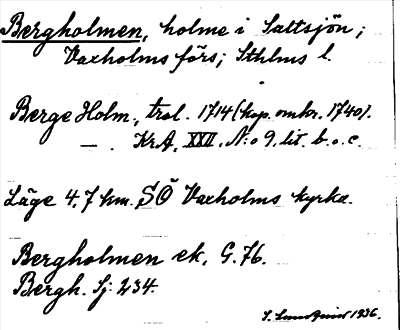 Bergholmen, holme i Saltsjön;
Vaxholms förs; Sthlms l.
Berge Holm., trol. 1714 (kop. omkr. 1740).
— . KrA, XXII, N:o 9, lit. b. o. c.
Läge 4,7 km. SÖ Vaxholms kyrka.
Bergholmen ek. G. 76.
Bergh. Sj 234.
1936.